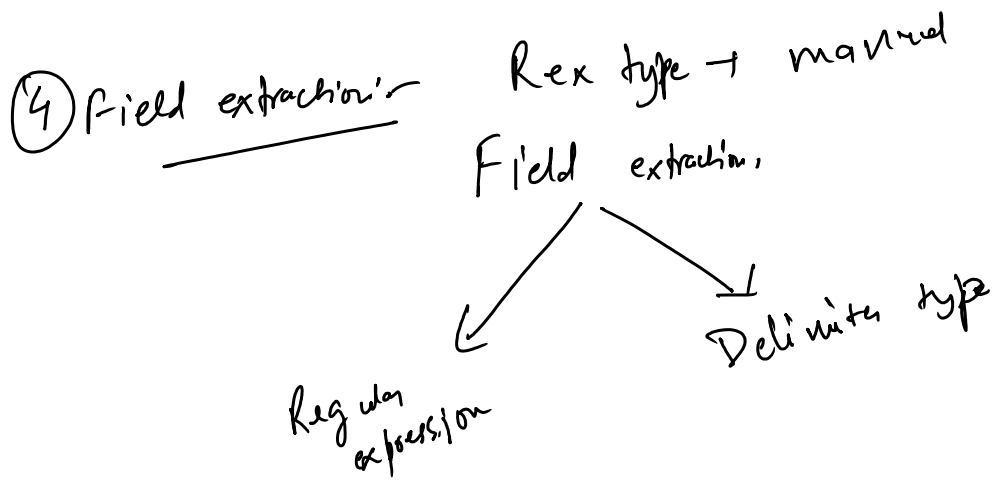 4 Field extraction:-
Rex type → manual
Field extraction.
Regular
expression
Delimiter type